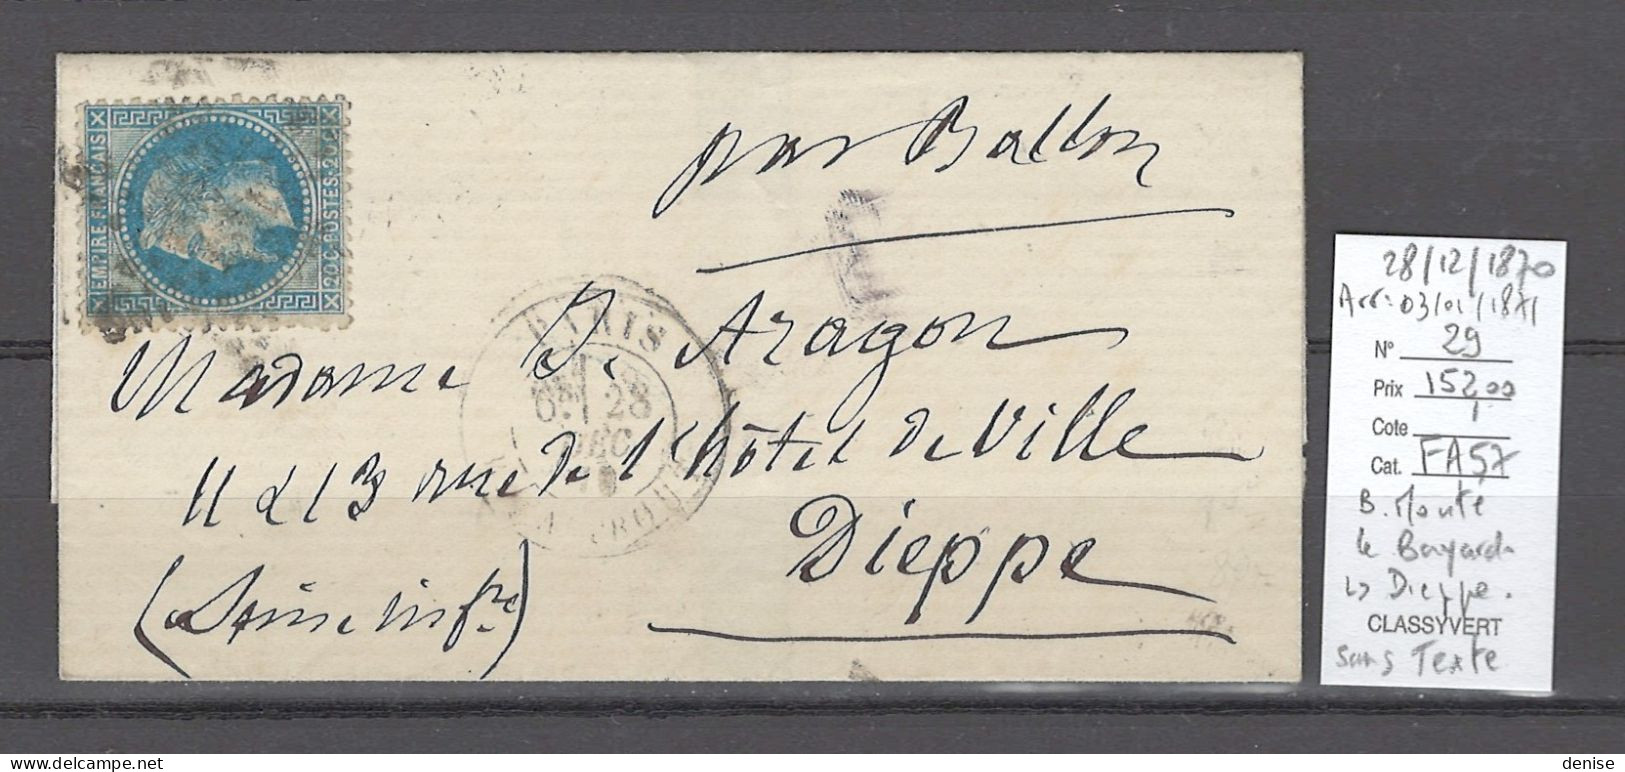 par Ballon
EMPIRE FRANÇAIS
20C. POSTES 20C
PARIS
28
DEC
Madame D. Aragon
11 & 13 rue de l'hôtel de Ville
Dieppe
(Seine infre)
28/12/1870
Arr: 03/01/1871
N° 29
Prix 152,00
Cote
Cat. FA57
B. Monté
le Bayard
Dieppe.
CLASSYVERT
Sans Texte
denise - delcampe.net